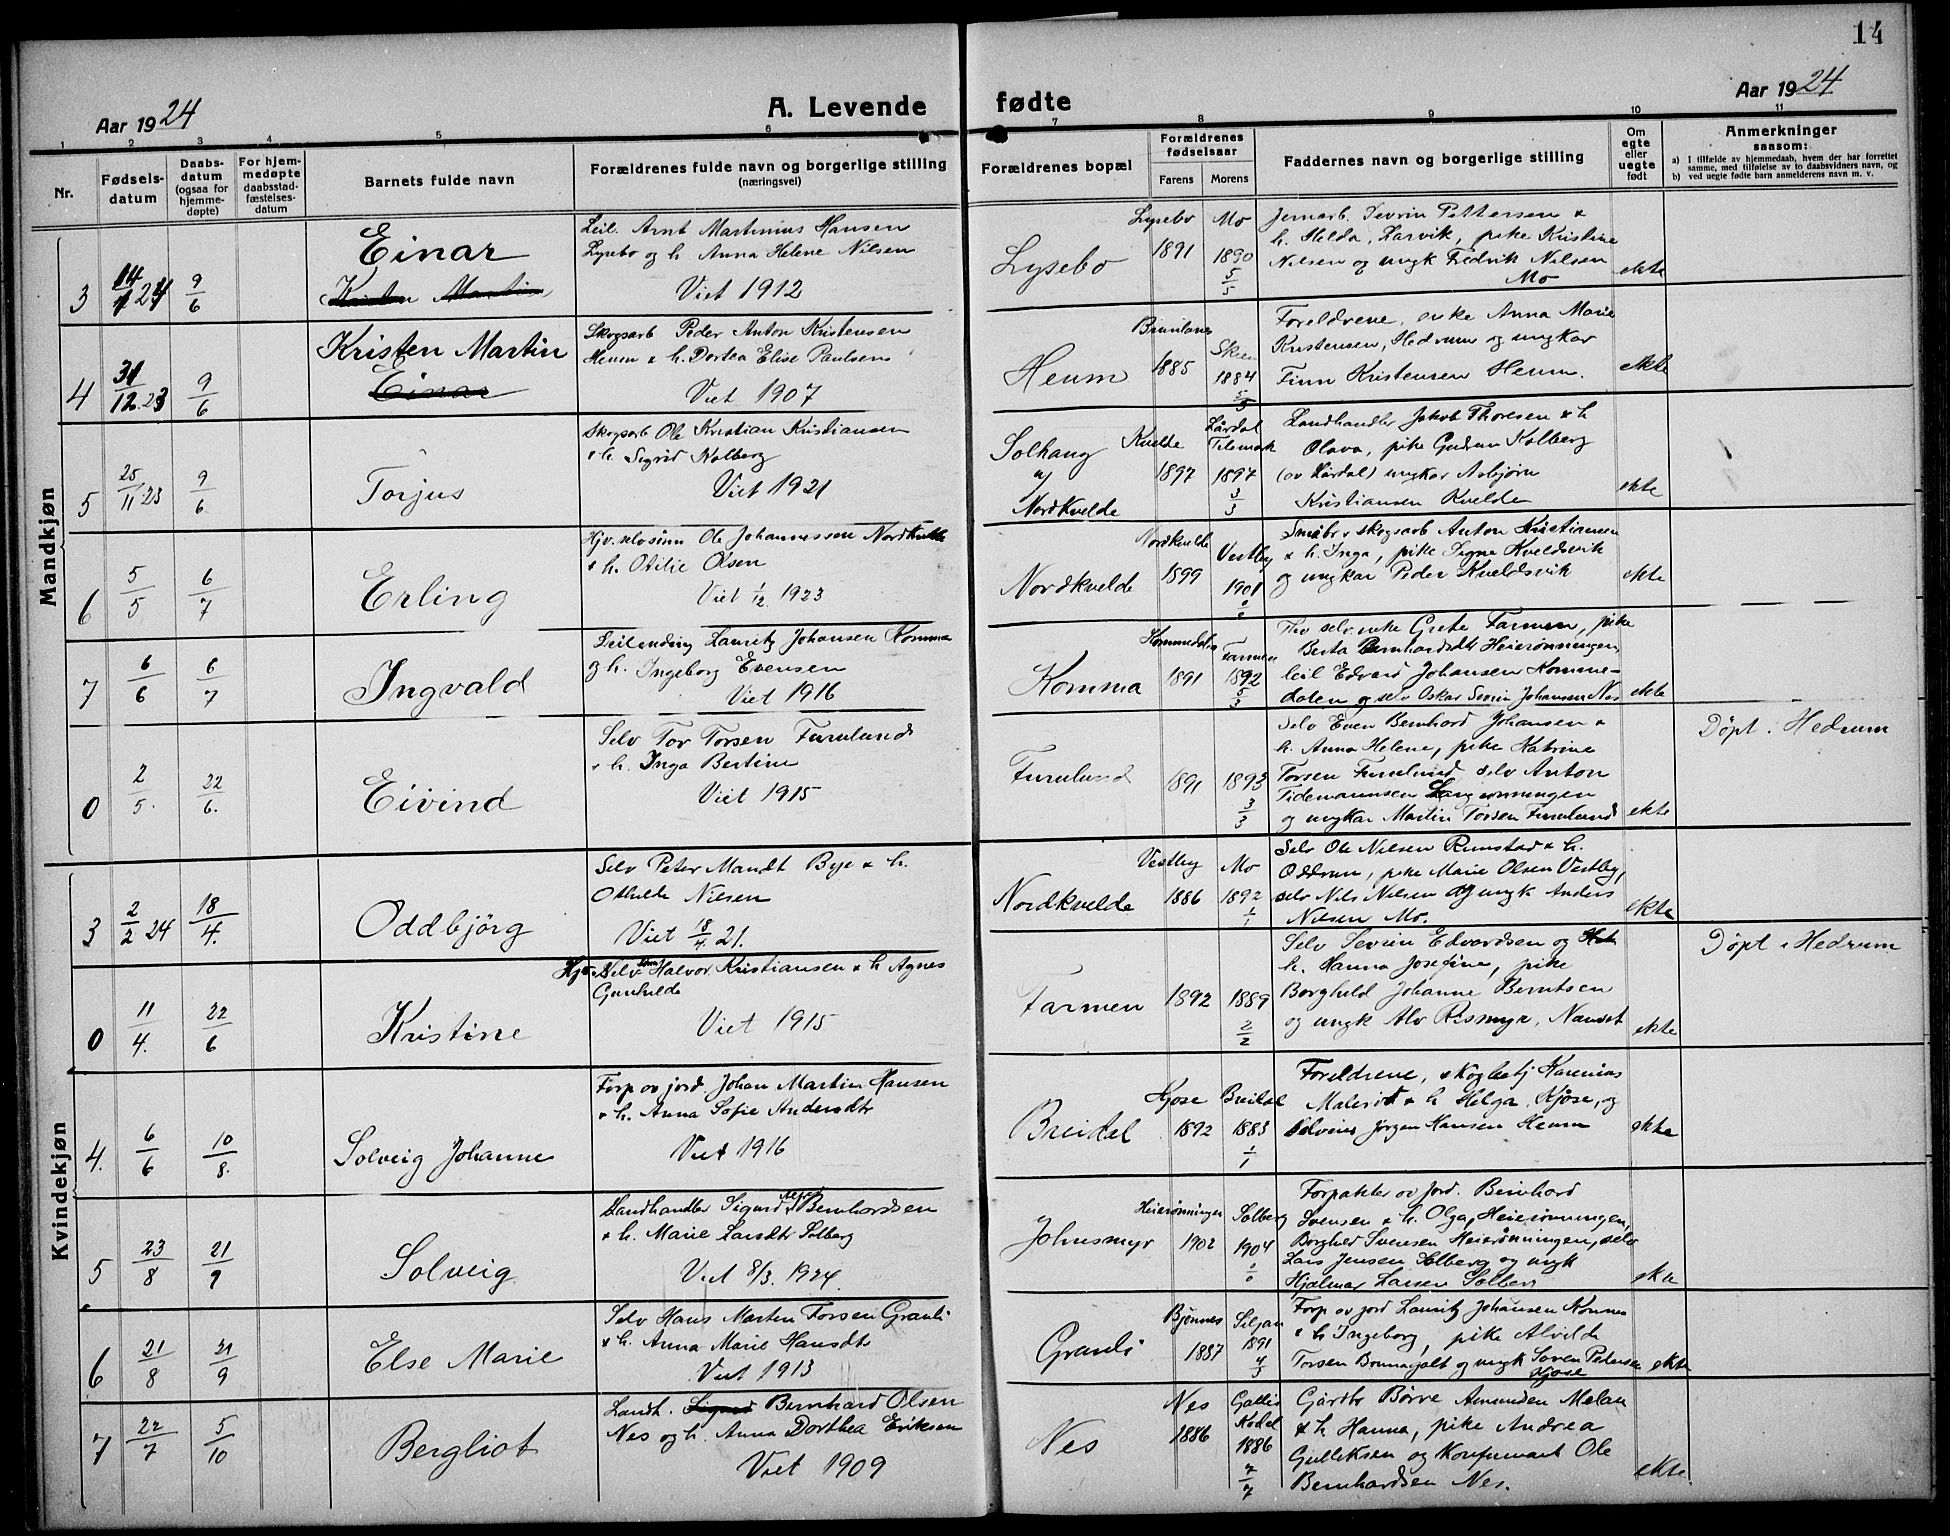 14
Aar 1924
A. Levende
fødte
Aar 1924
1 2 3 4 5 6 7 8 9 10 11
Nr.
Fødsels-
datum
Daabs-
datum
(ogsaa for
hjemme-
døpte)
For hjem-
medøpte
daabsstad-
fæstelses-
datum
Barnets fulde navn
Forældrenes fulde navn og borgerlige stilling
(næringsvei)
Forældrenes bopæl
Forældrenes
fødselsaar
Farens Morens
Faddernes navn og borgerlige stilling
Om
egte
eller
uegte
født
Anmerkninger
saasom:
a) I tilfælde av hjemmedaab, hvem der har forrettet
samme, med tilføielse av to daabsvidners navn, og
b) ved uegte fødte barn anmelderens navn m. v.
Mandkjøn
3 14/1 24 9/6
Einar
Kristen Martin
Leil. Arnt Martinius Hansen
Lysebo og h. Anna Helene Nilsen
Viet 1912
Lysebo
Lysebo Mo
1891 1890
5/5
Jernarb. Severin Pettersen &
h. Helda, Larvik, pike Kristine
Nilsen og ungk Fredrik Nilsen
Mo
ekte
4 31/12 23 9/6
Kristen Martin
Einar
Skogsarb Peder Anton Kristensen
Heum & h. Dortea Elise Paulsen
Viet 1907
Heum
Brunlanes Skien
1885 1884
5/3
Foreldrene, enke Anna Marie
Kristensen, Hedrum og ungkar
Finn Kristensen Heum.
ekte
5 25/11 23 9/6
Torjus
Skogsarb Ole Kristian Kristiansen
& h. Sigrid Kolberg
Viet 1921
Solhaug
u/
Nordkvelde
Kvelde Lårdal
Telemark
1897 1897
3/3
Landhandler Jakob Thoresen & h
Olava, pike Gudrun Kolberg
(av Lårdal) ungkar Asbjørn
Kristiansen Kvelde
ekte
6 5/5 6/7
Erling
Hjv. selv sønn Ole Johannessen Nordkvelde
& h. Otilie Olsen
Viet 1/12 1923
Nordkvelde
Nordkvelde Vestby
1899 1901
0/0
Småbr & skogsarb Anton Kristiansen
& h. Inga, pike Signe Kveldsvik
og ungkar Peder Kveldsvik
ekte
7 6/6 6/7
Ingvald
Leilending Lauritz Johansen Komma
og h. Ingeborg Evensen
Viet 1916
Komma
Kommedalen Farmen
1891 1892
5/3
Hv selv enke Grete Farmen, pike
Berta Bernhardsdtr Heierønningen,
leil Edvard Johansen Komme-
dalen og selv Oskar Severin Johansen Nes
ekte
0 2/5. 22/6.
Eivind
Selv Tor Torsen Furulund
& h. Inga Bertine
Viet 1915
Furulund
1891 1893
3/3
Selv Even Bernhard Johansen &
h. Anna Helene, pike Katrine
Torsen Furulund, selv Anton
Tidemannsen Langrønningen
og ungkar Martin Torsen Furulund
ekte
Døpt i Hedrum
Kvindekjøn
3 2/2 24 18/4.
Oddbjörg
Selv Peter Mandt Bye & h.
Othilde Nilsen
Viet 18/4. 21.
Nordkvelde
Vestby Mo
1886 1892
1/1
Selv Ole Nilsen Rimstad & h.
Oddrun, pike Marie Olsen Vestby,
selv Nils Nilsen og ungk Anders
Nilsen Mo.
ekte
0 11/4. 22/6
Kristine
Hjv. Selv sønn Halvor Kristiansen & h Agnes
Gunhilde
Viet 1915
Farmen
1892 1889
2/2
Selv Severin Edvardsen og
h. Hanna Josefine, pike
Borghild Johanne Berntsen
og ungk Alv Rismyr, Nanset
ekte
Døpt i Hedrum
4. 6/6 10/8.
Solveig Johanne
Forp av jord Johan Martin Hansen
& h. Anna Sofie Andersdtr
Viet 1916
Breidal
Kjose Breidal
1892 1883
1/1
Foreldrene, skogbetj Karenius
Malerød & h Helga, Kjøse, og
selveier Jørgen Hansen Heum
ekte
5 23/8 21/9
Solveig
Landhandler Sigurd Alfred Bernhardsen
& h. Marie Larsdtr Solberg
Viet 8/3. 1924.
Johnsmyr
Heierønningen Solberg
1902 1904
0/0
Forpakter av jord. Bernhard
Svensen & h. Olga, Heierønningen,
Borghild Svensen Heierønningen, selv
Lars Jensen Solberg og ungk
Hjalmar Larsen Solberg
ekte
6 21/8 21/9
Else Marie
Selv Hans Martin Torsen Granli
& h. Anna Marie Hansdtr
Viet 1913
Granli
Bjønnes Siljan
1887 1891
4/3
Forp av jord Lauritz Johansen Komma
& h Ingeborg, pike Alvilde
Torsen Bonnagolt og ungk Søren Pedersen
Kjose
ekte
7 22/7 5/10
Bergliot
Landh. Sigurd Bernhard Olsen
Nes og h. Anna Dorthea Eriksen
Viet 1909
Nes
Nes Gallis
Kodal
1886 1886
7/7
Gårdbr Børre Amundsen Melau
& h Hanna, pike Andrea
Gulliksen og Konfirmant Ole
Bernhardsen Nes.
ekte